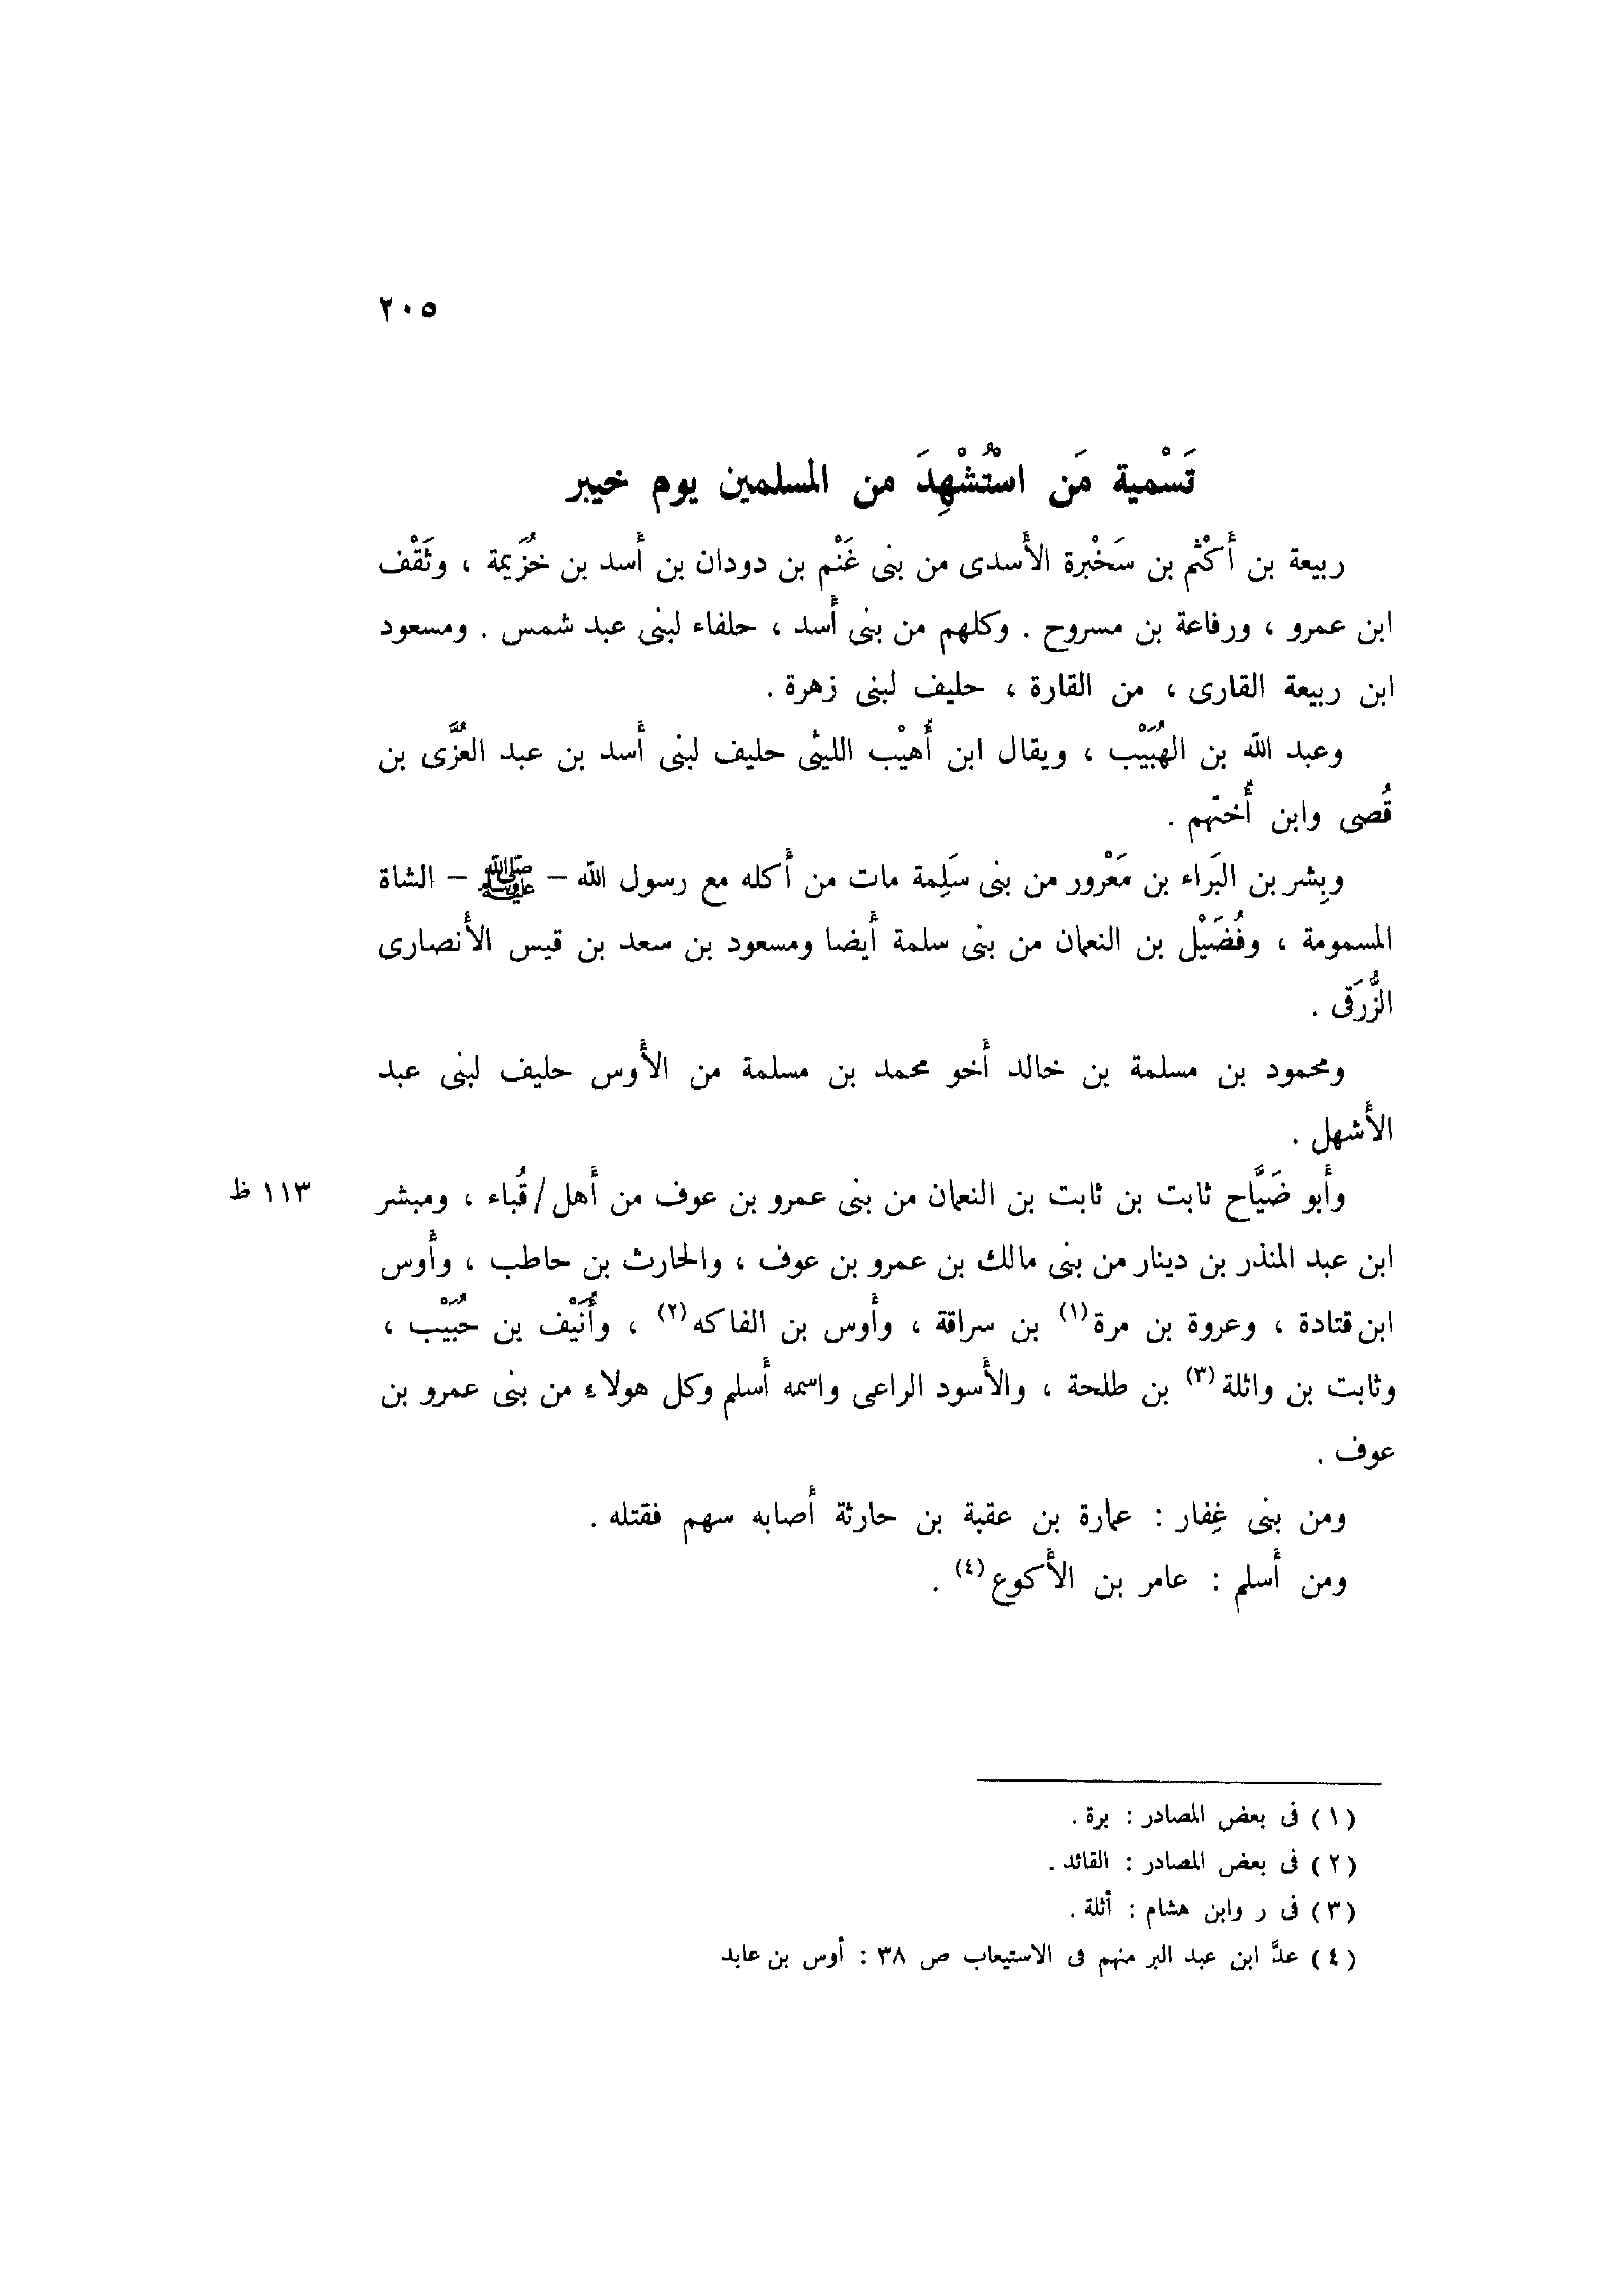 ٢٠٥
تَسْمية مَن اسْتُشْهِدَ من المسلمين يوم خيبر
ربيعة بن أَكْثم بن سَخْبرة الأَسدى من بنى غَنْم بن دودان بن أَسد بن خُزَيمة ، وثَقْف
ابن عمرو ، ورفاعة بن مسروح . وكلهم من بنى أَسد ، حلفاء لبنى عبد شمس . ومسعود
ابن ربيعة القارى ، من القارة ، حليف لبنى زهرة .
وعبد الله بن الهُبَيْب ، ويقال ابن أُهيْب الليثى حليف لبنى أَسد بن عبد العُزَّى بن
قُصى وابن أُختهم .
وبِشر بن البَراء بن مَعْرور من بنى سَلِمة مات من أَكله مع رسول الله – ﷺ – الشاة
المسمومة ، وفُضَيْل بن النعمان من بنى سلمة أَيضا ومسعود بن سعد بن قيس الأَنصارى
الزُّرَقى .
ومحمود بن مسلمة بن خالد أَخو محمد بن مسلمة من الأَوس حليف لبنى عبد
الأَشهل .
وأَبو ضَيَّاح ثابت بن ثابت بن النعمان من بنى عمرو بن عوف من أَهل / قُباء ، ومبشر ١١٣ ظ
ابن عبد المنذر بن دينار من بنى مالك بن عمرو بن عوف ، والحارث بن حاطب ، وأَوس
ابن قتادة ، وعروة بن مرة (١) بن سراقة ، وأَوس بن الفاكه (٢) ، وأُنَيْف بن حُبَيْب ،
وثابت بن واثلة (٣) بن طلحة ، والأَسود الراعى واسمه أَسلم وكل هولاء من بنى عمرو بن
عوف .
ومن بنى غِفار : عمارة بن عقبة بن حارثة أَصابه سهم فقتله .
ومن أَسلم : عامر بن الأَكوع (٤) .
(١) فى بعض المصادر : برة .
(٢) فى بعض المصادر : القائد .
(٣) فى ر وابن هشام : أثلة .
(٤) عدَّ ابن عبد البر منهم فى الاستيعاب ص ٣٨ : أوس بن عابد